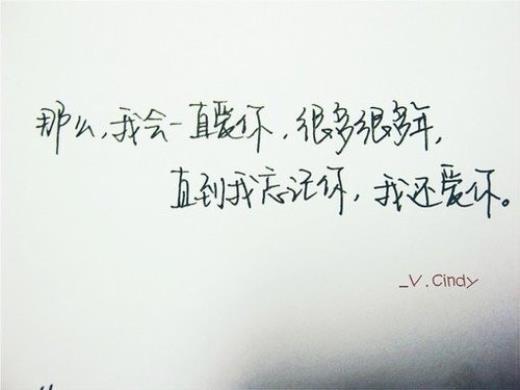 那么，我会一直爱你，很多很多年，
直到我忘记你，我还爱你。
_V.Cindy